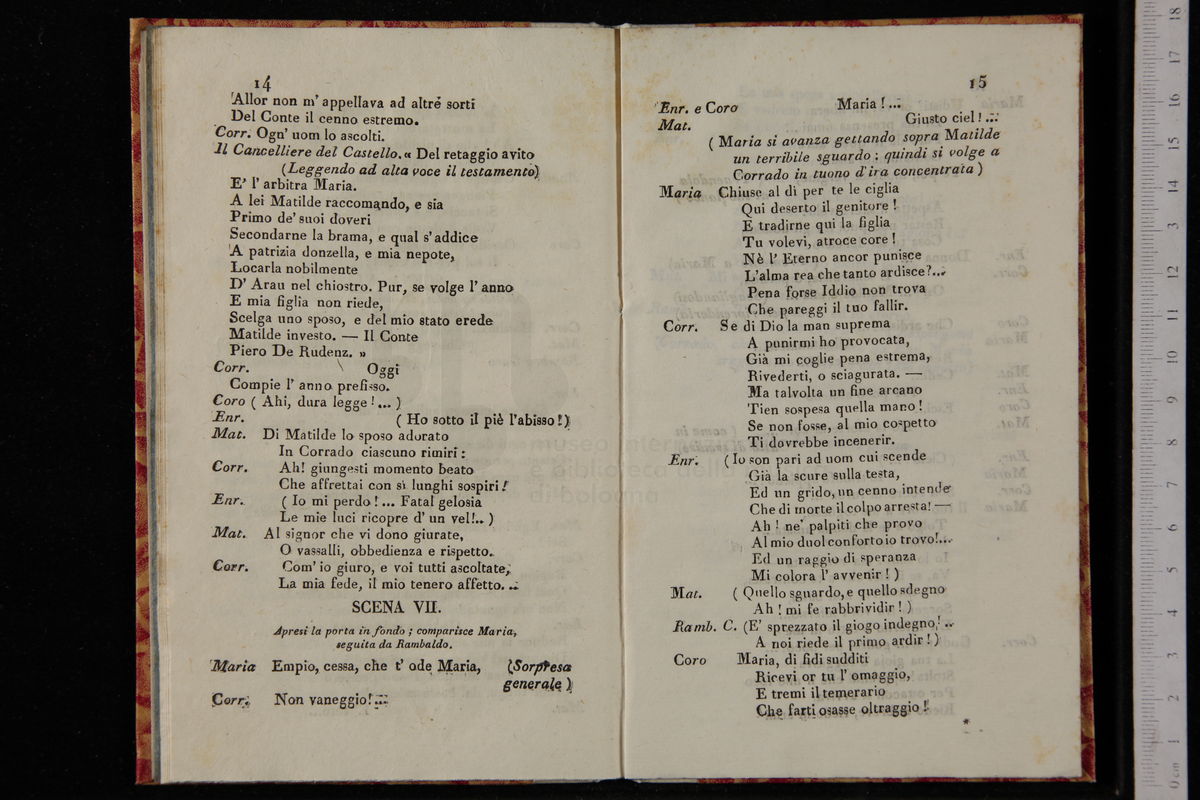 14
Allor non m' appellava ad altre sorti
Del Conte il cenno estremo.
Corr. Ogn' uom lo ascolti.
Il Cancelliere del Castello. « Del retaggio avito
(Leggendo ad alta voce il testamento)
E' l' arbitra Maria.
A lei Matilde raccomando, e sia
Primo de' suoi doveri
Secondarne la brama, e qual s' addice
A patrizia donzella, e mia nepote,
Locarla nobilmente
D' Arau nel chiostro. Pur, se volge l' anno
E mia figlia non riede,
Scelga uno sposo, e del mio stato erede
Matilde investo. — Il Conte
Piero De Rudenz. »
Corr. Oggi
Compie l' anno prefisso.
Coro ( Ahi, dura legge!... )
Enr. ( Ho sotto il piè l'abisso!)
Mat. Di Matilde lo sposo adorato
In Corrado ciascuno rimiri:
Corr. Ah! giungesti momento beato
Che affrettai con sì lunghi sospiri!
Enr. ( Io mi perdo!... Fatal gelosia
Le mie luci ricopre d' un vel!.. )
Mat. Al signor che vi dono giurate,
O vassalli, obbedienza e rispetto.
Corr. Com' io giuro, e voi tutti ascoltate,
La mia fede, il mio tenero affetto...
SCENA VII.
Apresi la porta in fondo; comparisce Maria,
seguita da Rambaldo.
Maria Empio, cessa, che t' ode Maria, (Sorpresa
generale)
Corr. Non vaneggio!...
15
Enr. e Coro Maria!...
Mat. Giusto ciel!...
( Maria si avanza gettando sopra Matilde
un terribile sguardo; quindi si volge a
Corrado in tuono d'ira concentrata )
Maria Chiuse al dì per te le ciglia
Qui deserto il genitore!
E tradirne qui la figlia
Tu volevi, atroce core!
Nè l' Eterno ancor punisce
L'alma rea che tanto ardisce?...
Pena forse Iddio non trova
Che pareggi il tuo fallir.
Corr. Se di Dio la man suprema
A punirmi ho provocata,
Già mi coglie pena estrema,
Rivederti, o sciagurata. —
Ma talvolta un fine arcano
Tien sospesa quella mano!
Se non fosse, al mio cospetto
Ti dovrebbe incenerir.
Enr. (Io son pari ad uom cui scende
Già la scure sulla testa,
Ed un grido, un cenno intende
Che di morte il colpo arresta! —
Ah! ne' palpiti che provo
Al mio duol conforto io trovo!...
Ed un raggio di speranza
Mi colora l' avvenir! )
Mat. ( Quello sguardo, e quello sdegno
Ah! mi fe rabbrividir! )
Ramb. C. (E' sprezzato il giogo indegno!..
A noi riede il primo ardir!)
Coro Maria, di fidi sudditi
Ricevi or tu l' omaggio,
E tremi il temerario
Che farti osasse oltraggio!
*
museo internaz
e biblioteca della
di bologna
0 cm 1 2 3 4 5 6 7 8 9 10 11 12 13 14 15 16 17 18